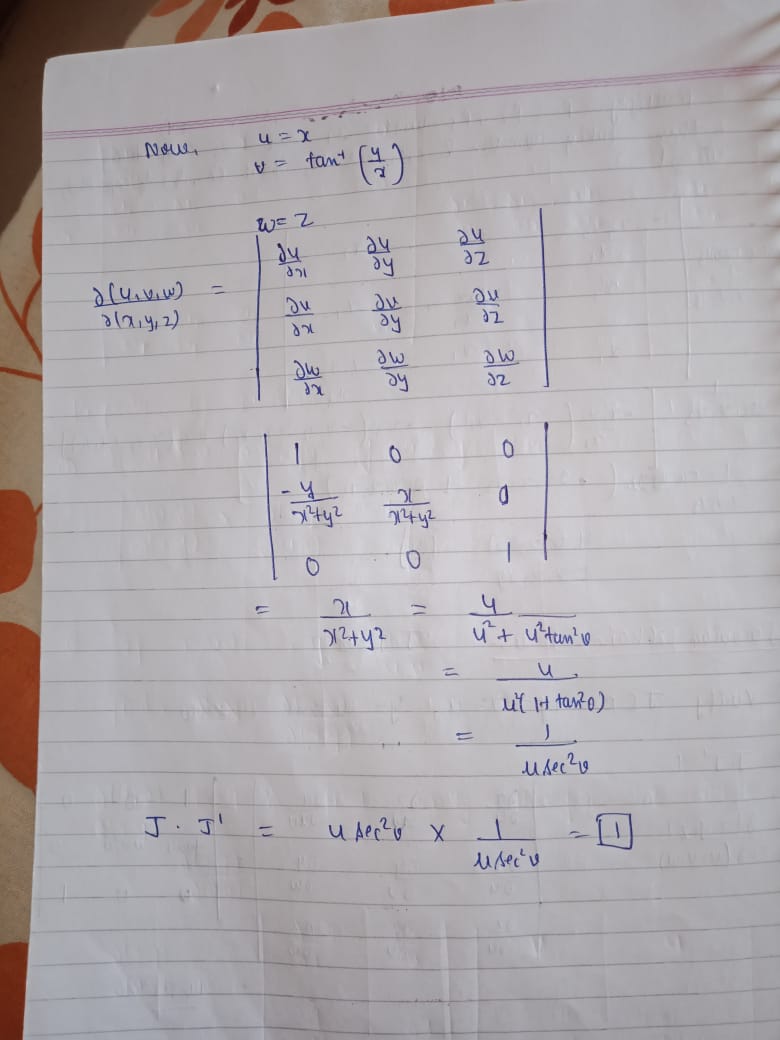 Now, u = x
v = tan⁻¹ (y/x)
w = z
∂(u,v,w)/∂(x,y,z) = | ∂u/∂x ∂u/∂y ∂u/∂z |
| ∂v/∂x ∂v/∂y ∂v/∂z |
| ∂w/∂x ∂w/∂y ∂w/∂z |
| 1 0 0 |
| -y/(x²+y²) x/(x²+y²) 0 |
| 0 0 1 |
= x/(x²+y²) = u/(u² + u²tan²v)
= u/(u²(1+tan²v))
= 1/(u sec²v)
J · J' = u sec²v × 1/(u sec²v) = 1